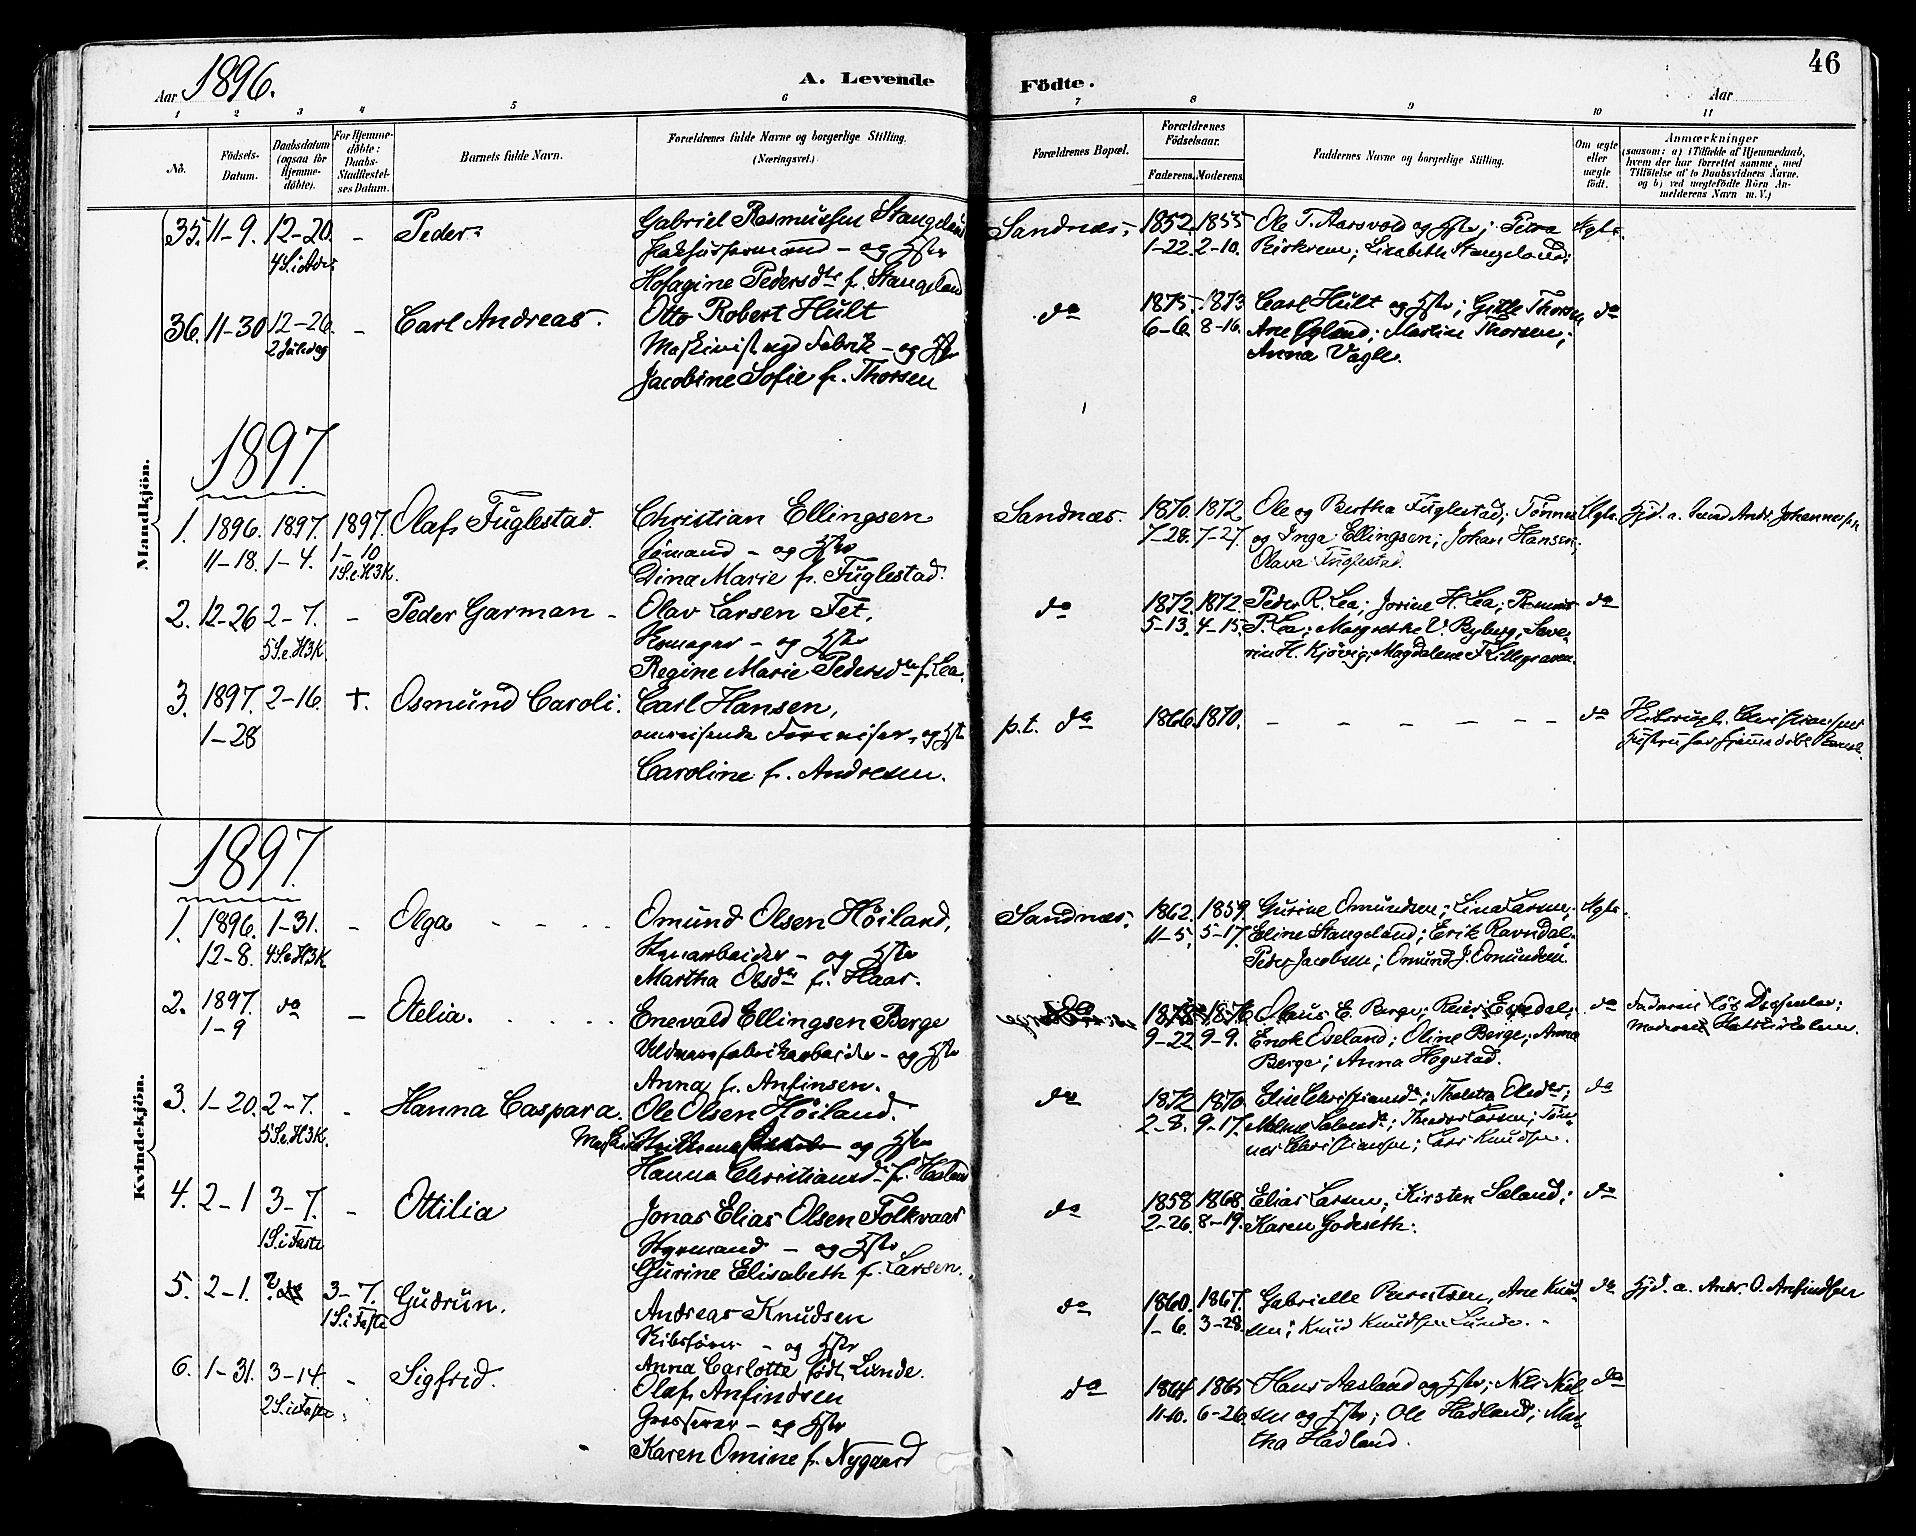 Aar 1896.
A. Levende
Födte.
46
Aar
1 2 3 4 5 6 7 8 9 10 11
No.
Födsels-Datum.
Daabsdatum (ogsaa for Hjemme-döbte).
For Hjemme-döbte: Daabs-Stadfæstel-ses Datum.
Barnets fulde Navn.
Forældrenes fulde Navne og borgerlige Stilling.
(Næringsvei.)
Forældrenes Bopæl.
Forældrenes Födselsaar.
Faderens. Moderens.
Faddernes Navne og borgerlige Stilling.
Om ægte eller uægte födt.
Anmærkninger
(saasom: a) i Tilfælde af Hjemmedaab,
hvem der har forrettet samme, med
Tilföielse af to Daabsvidners Navne,
og b) ved uægtefödte Börn An-
melderens Navn m. V.)
Mandkjön.
35. 11-9. 12-20. - Peder. Gabriel Rasmussen Stangeland Sandnæs. 1852. 1855 Ole T. Aarsvold og Hstr; Petra Ægte.
4 S. i Adv. - og Hstr 1-22. 2-10. Birkrem; Lisabeth Stangeland;
Hofagine Pedersdtr f. Stangeland
36. 11-30 12-26. - Carl Andreas. Otto Robert Hult do 1875. 1873 Carl Hult og Hstr; Gitle Thorsen do
2 Juledag Maskinist ved Fabrik - og Hstr 6-6. 8-16. Ane Øglend; Martin Thorsen;
Jacobine Sofie f. Thorsen Anna Vagle.
1897.
1. 1896. 1897. 1897. Olaf Fuglestad. Christian Ellingsen Sandnæs. 1870. 1872 Ole og Bertha Fuglestad; Tønnes Ægte. Hjd. a. Andr. Johannessen
11-18. 1-4. 1-10 Sømand - og Hstr 7-28. 7-27. og Inga Ellingsen; Johan Hansen;
1 S. e. H3K. Dina Marie f. Fuglestad. Olava Fuglestad.
2. 12-26 2-7. - Peder Garman - Olav Larsen Tet, do 1872. 1872. Peder R. Lea; Jorine H. Lea; Rasmus do
5 S. e. H3K - og Hstr 5-13. 4-15. P. Lea; Margrethe V. Ryberg; Seve-
Regine Marie Pedersdtr f. Lea. rin H. Kjøvig; Magdalene F. Lillegraven.
3. 1897. 2-16. †. Osmund Caroli. Carl Hansen, p.t. do 1866. 1870. - - - - - - do
1-28 omreisende - og Hstr
Caroline f. Andresen.
Kvindekjön.
1897.
1. 1896. 1-31. - Olga - - - - Omund Olsen Høiland, Sandnæs. 1862. 1859. Gurine Omundsen; Lina Larsen; Ægte.
12-8. 4 S. e. H3K - og Hstr 11-5. 5-17. Eline Stangeland; Erik Ravndal.
Martha Olsdtr f. Haar. Peder Jacobsen; Omund J. Omundsen.
2. 1897. do - Otelia. - - - - Enevald Ellingsen Berge 1876 Olaus E. Berge; Reier Espedal; do Faderen løst Dissenter;
1-9 Uldvarefabrikarbeider - og Hstr 9-22 9-9. Enok Oseland; Oline Berge; Anna Moderen Statskirkelem.
Anna f. Anfinsen. Berge; Anna Høgstad.
3. 1-20. 2-7. - Hanna Caspara. Ole Olsen Høiland. do 1872 1870. Elin Christiansdtr; Thalette Olsdtr; do
5 S. e. H3K. og Hstr 2-8. 9-17. Malene Seland; Theodor Larsen; Tøn-
Hanna Christiansdtr f. Hasland nes Christiansen; Lars Knudsen.
4. 2-1 3-7. - Ottilia Jonas Elias Olsen Folkvaar do 1858 1868. Elias Larsen; Kirsten Seland; do
1 S. i Faste Styrmand - og Hstr 2-26. 8-19. Karen Godeseth.
Gurine Elisabeth f. Larsen.
5. 2-1. 3-7. Gudrun. Andreas Knudsen do 1860. 1867. Gabrielle Berntsen, Ane Knud- do Hjd. a. Andr. O. Anfindsen
1 S. i Faste Skibsfører - og Hstr 1-6. 3-28. sen; Knud Knudsen Lunde.
Anna Carlotte født Lunde.
6. 1-31. 3-14. - Sigfrid. Olaf Anfindsen do 1864 1865 Hans Aasland og Hstr; Nils Niel- do
2 S. i Faste Grosserer - og Hstr 11-10. 6-26. sen og Hstr; Ole Hadland; Mar-
Karen Omine f. Nygaard tha Hadland.